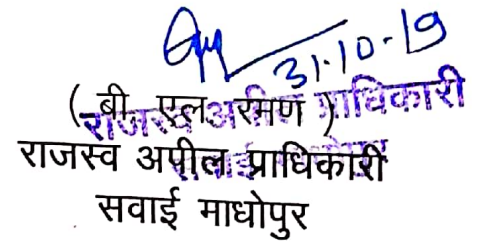 31.10.19
( बी. एल. रमण )
राजस्व अपील प्राधिकारी
राजस्व अपील प्राधिकारी
सवाई माधोपुर